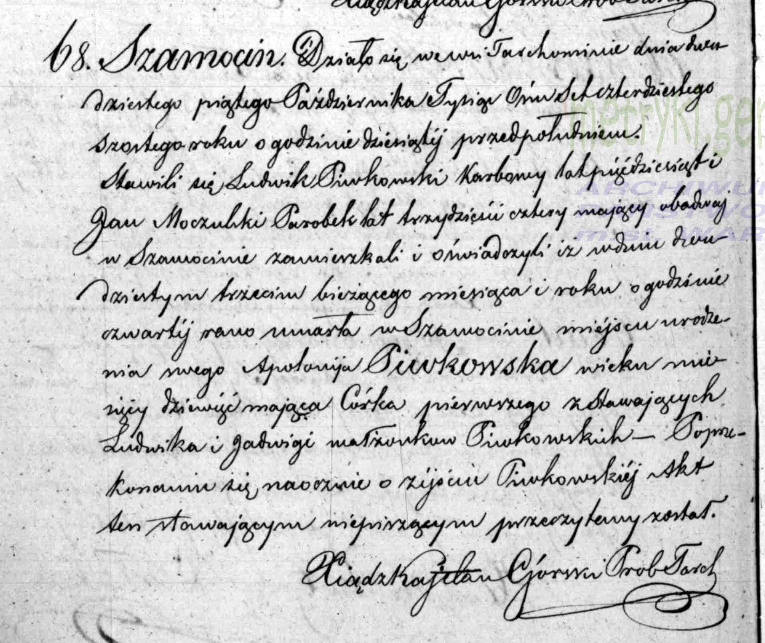 Xiądz Kajetan Górski Prob Tarch
68. Szamocin. Działo się we wsi Tarchominie dnia dwu-
dziestego piątego Października Tysiąc Ośm Set czterdziestego
szóstego roku o godzinie dziesiątéj przedpołudniem.
Stawili się Ludwik Piwkowski Karbowy lat pięćdziesiąt i
Jan Moczulski Parobek lat trzydzieści cztery mający obadwaj
w Szamocinie zamieszkali i oświadczyli iż w dniu dwu-
dziestym trzecim bieżącego miesiąca i roku o godzinie
czwartéj rano umarła w Szamocinie miejscu urodze-
nia swego Apolonija Piwkowska wieku mie-
sięcy dziewięć mająca Córka pierwszego z Stawających
Ludwika i Jadwigi małżonków Piwkowskich — Poprze-
konaniu się naocznie o zejściu Piwkowskiéj Akt
ten stawającym niepiszącym przeczytany został.
Xiądz Kajetan Górski Prob Tarch
metryki.gen
ARCHIWUM
PAŃSTWO
M.ST. WAR